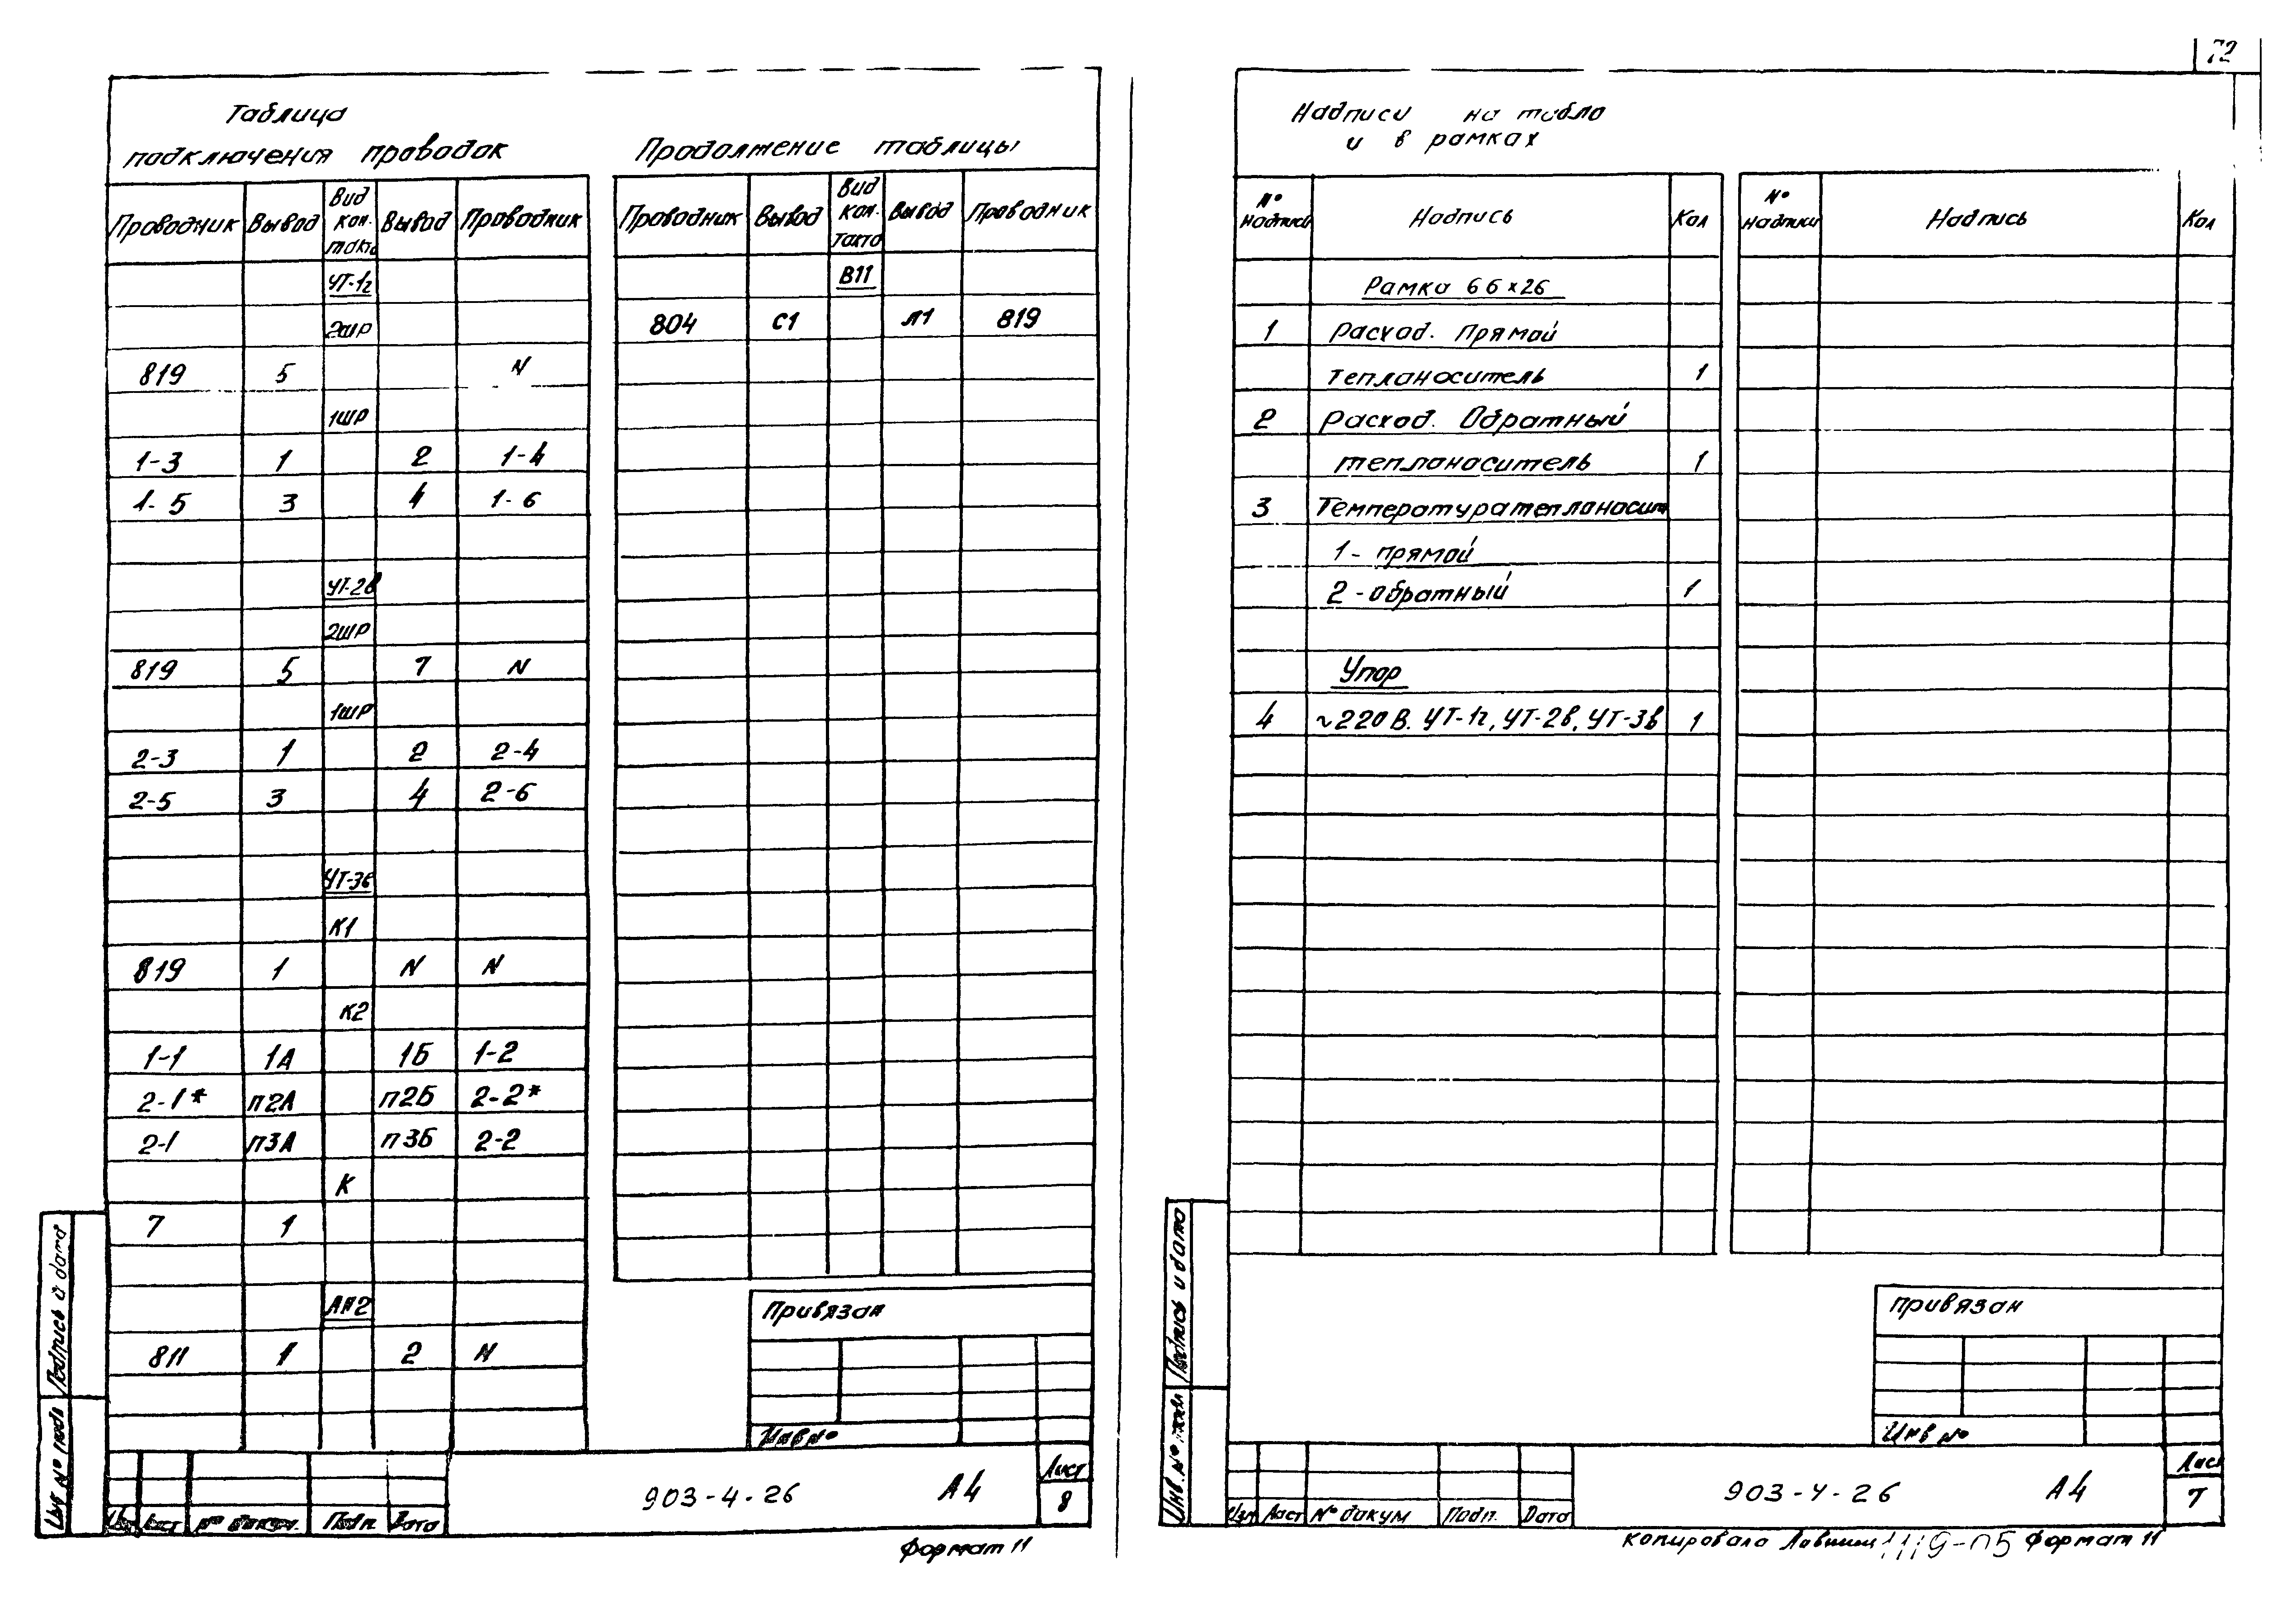 72
Таблица
подключения проводок
Продолжение таблицы
Проводник Вывод Вид кон. такта Вывод Проводник
УТ-1г
2шр
819 5 N
1шр
1-3 1 2 1-4
1-5 3 4 1-6
УТ-2в
2шр
819 5 7 N
1шр
2-3 1 2 2-4
2-5 3 4 2-6
УТ-3в
К1
819 1 N N
К2
1-1 1А 1Б 1-2
2-1* п2А п2Б 2-2*
2-1 п3А п3Б 2-2
К
7 1
АП2
811 1 2 N
Проводник Вывод Вид кон. такта Вывод Проводник
В11
804 С1 Л1 819
Привязан
Инв №
Подпись и дата
Инв № подл
Изм Лист № докум. Подп. Дата
903-4-26 А4
Лист
8
Формат 11
Надписи на табло
и в рамках
№ надписи Надпись Кол
№ надписи Надпись Кол
Рамка 66х26
1 Расход. Прямой
теплоноситель 1
2 Расход. Обратный
теплоноситель 1
3 Температура теплоносит
1- прямой
2 - обратный 1
Упор
4 ~220В. УТ-1г, УТ-2в, УТ-3в 1
Привязан
Инв №
Подпись и дата
Инв. №
Изм Лист № докум Подп. Дата
903-4-26 А4
Лист
7
Копировала
Формат 11